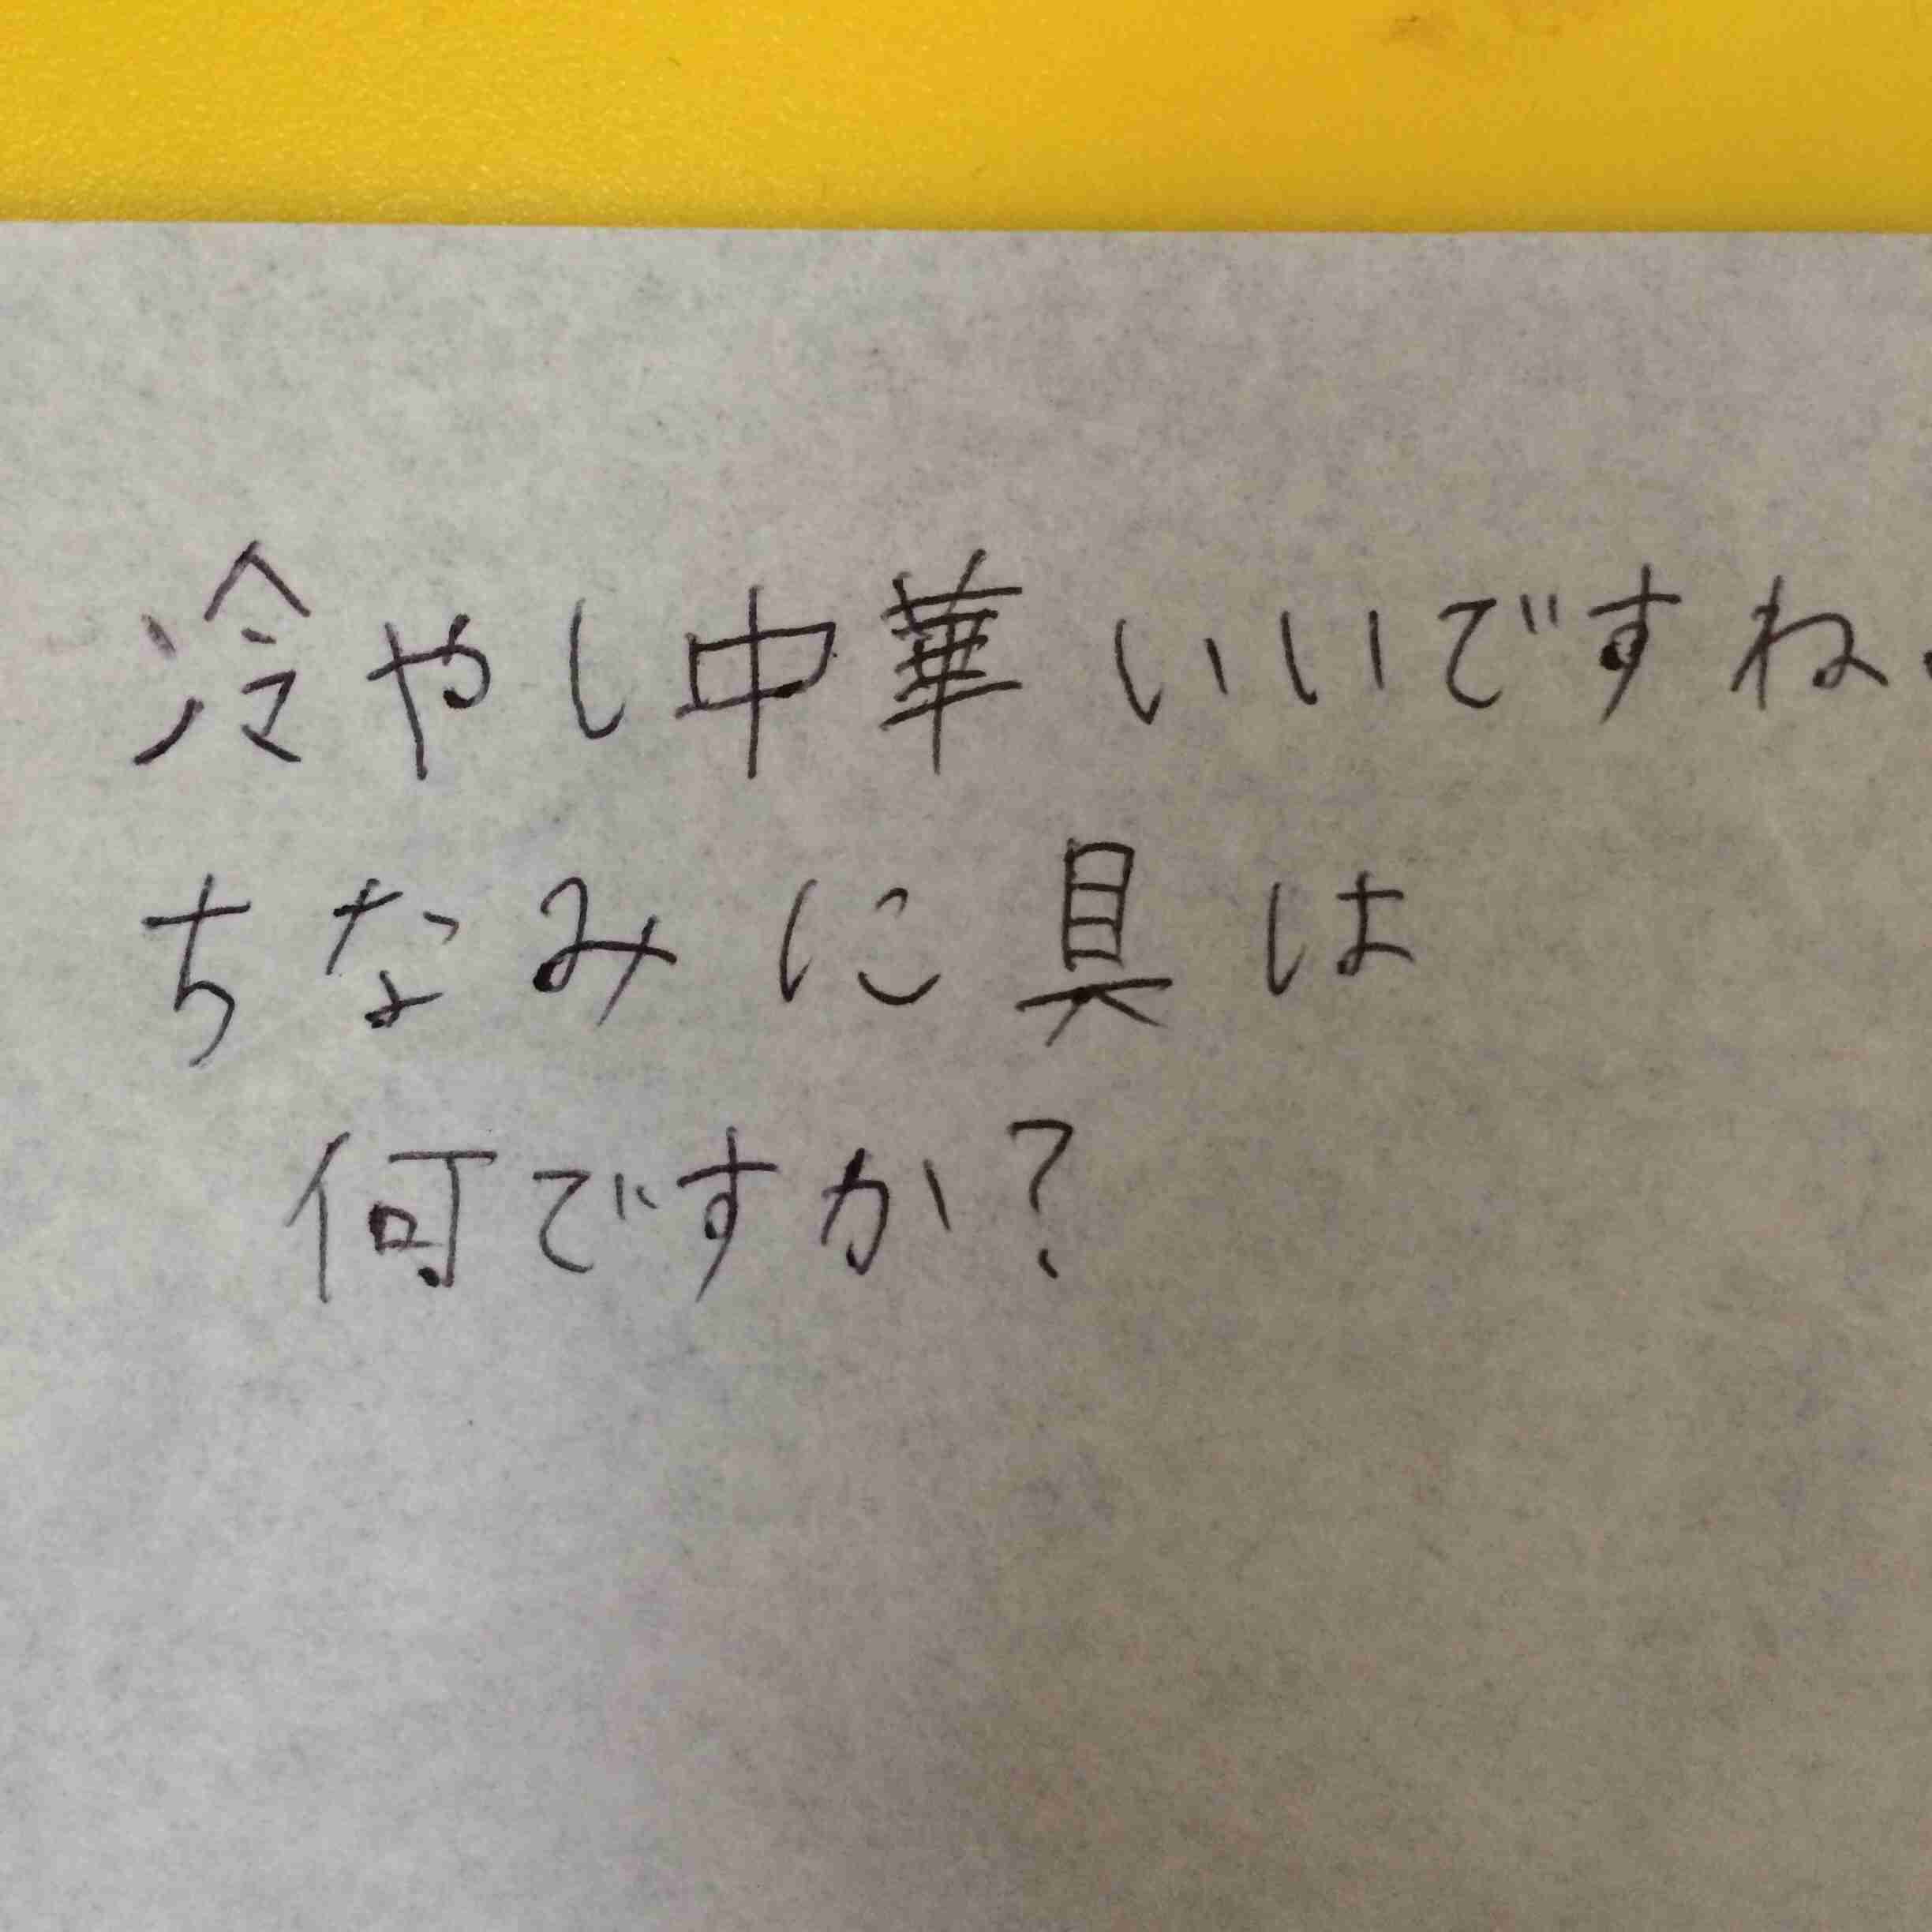 冷やし中華いいですね。
ちなみに具は
何ですか?